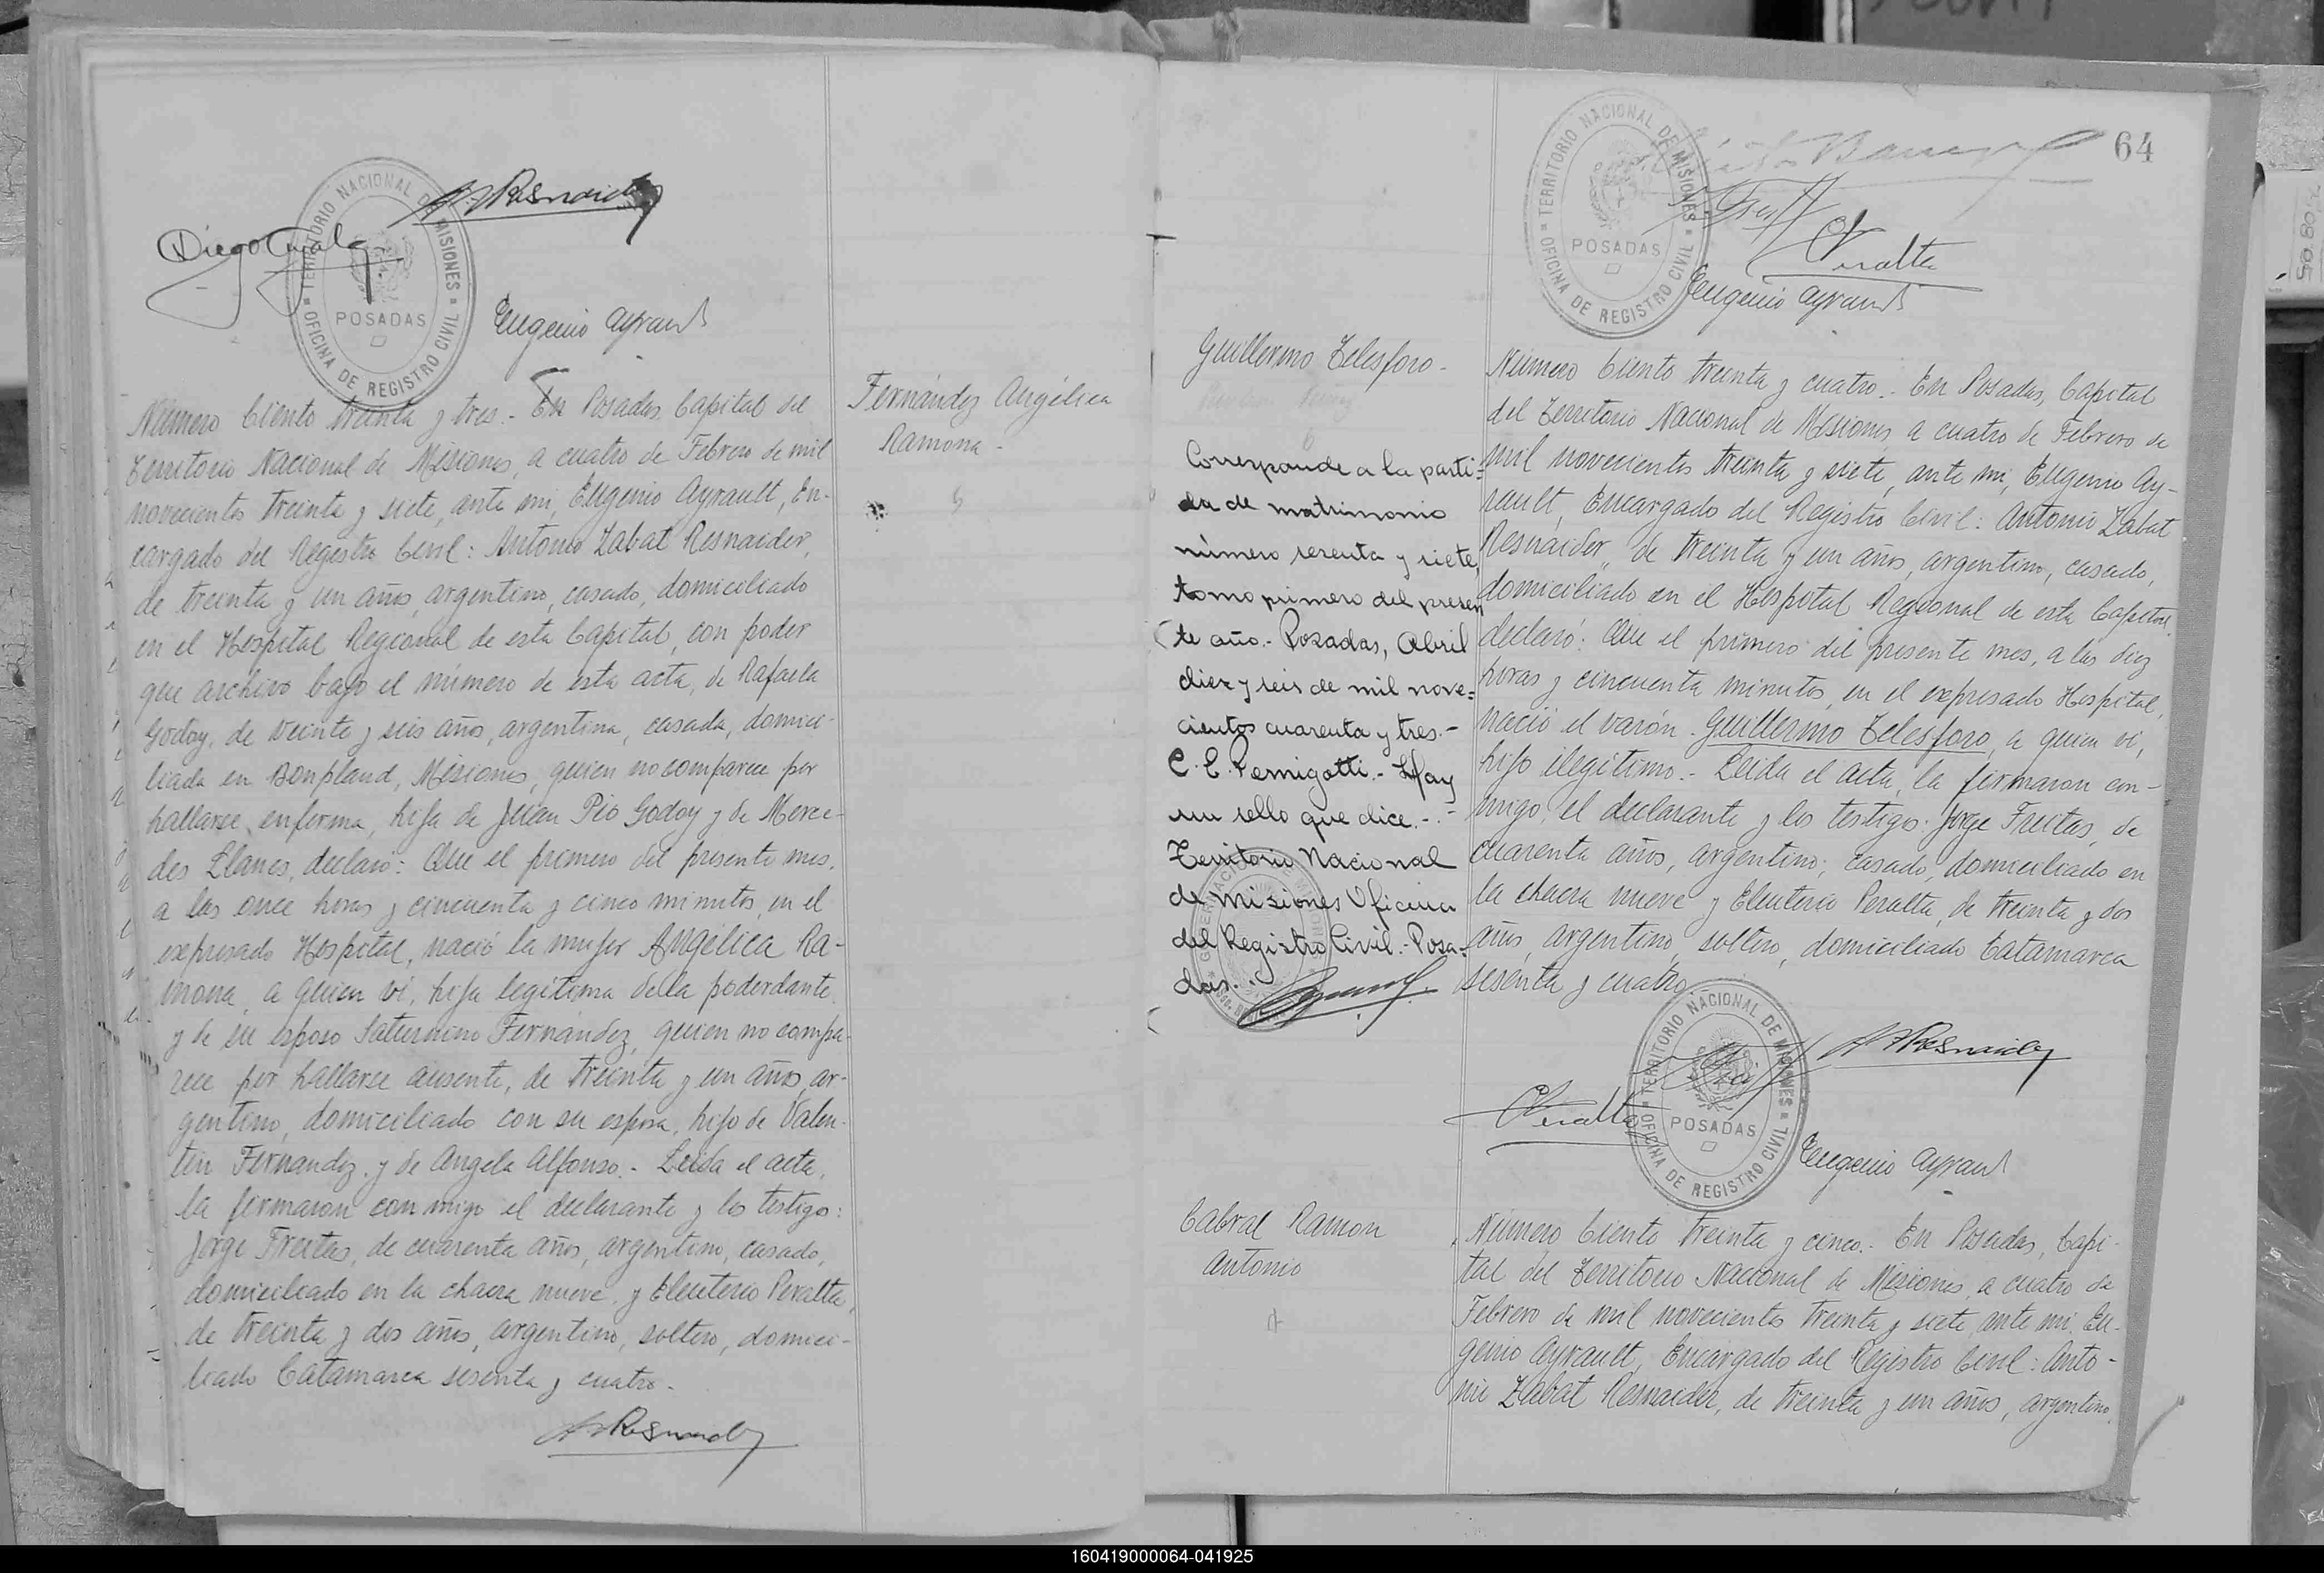 TERRITORIO NACIONAL DE MISIONES
OFICINA DE REGISTRO CIVIL
POSADAS
Eugenio Ayrault
Fernández Angélica
Ramona -
Número Ciento treinta y tres.- En Posadas Capital del
Territorio Nacional de Misiones, a cuatro de Febrero de mil
novecientos treinta y siete, ante mi, Eugenio Ayrault, En-
cargado del Registro Civil: Antonio Zabat Resnaider,
de treinta y un años, argentino, casado, domiciliado
en el Hospital Regional de esta Capital, con poder
que archivo bajo el número de esta acta, de Rafaela
Godoy, de veinte y seis años, argentina, casada, domici-
liada en Bonpland, Misiones, quien no comparece por
hallarse enferma, hija de Juan Pío Godoy y de Merce-
des Llanes, declaró: Que el primero del presente mes,
a las once horas y cincuenta y cinco minutos, en el
expresado Hospital, nació la mujer Angélica Ra-
mona, a quien ví, hija legítima de la poderdante
y de su esposo Saturnino Fernández, quien no compa-
rece por hallarse ausente, de treinta y un años, ar-
gentino, domiciliado con su esposa, hijo de Valen-
tín Fernandez y de Angela Alfonso.- Leida el acta,
la firmaron con migo el declarante y los testigo:
Jorge Freitas, de cuarenta años, argentino, casado,
domiciliado en la chacra nueve, y Eleuterio Peralta,
de treinta y dos años, argentino, soltero, domici-
liado Catamarca sesenta y cuatro.-
64
TERRITORIO NACIONAL DE MISIONES
OFICINA DE REGISTRO CIVIL
POSADAS
Peralta
Eugenio Ayrault
Guillermo Telesforo.-
Corresponde a la parti-
da de matrimonio
número sesenta y siete,
tomo primero del presen
te año.- Posadas, Abril
diez y seis de mil nove-
cientos cuarenta y tres.-
C. E. Pernigotti.- Hay
un sello que dice.-.-
Territorio Nacional
de Misiones Oficina
del Registro Civil.- Posa-
das.-
Número Ciento treinta y cuatro.- En Posadas, Capital
del Territorio Nacional de Misiones a cuatro de Febrero de
mil novecientos treinta y siete, ante mi, Eugenio Ay-
rault, Encargado del Registro Civil: Antonio Zabat
Resnaider, de treinta y un años, argentino, casado,
domiciliado en el Hospital Regional de esta Capital,
declaró: Que el primero del presente mes, a las diez
horas y cincuenta minutos, en el expresado Hospital,
nació el varón Guillermo Telesforo, a quien ví,
hijo ilegítimo.- Leida el acta, la firmaron con-
migo, el declarante y los testigo: Jorge Freitas, de
cuarenta años, argentino, casado, domiciliado en
la chacra nueve y Eleuterio Peralta, de treinta y dos
años, argentino, soltero, domiciliado Catamarca
sesenta y cuatro.
TERRITORIO NACIONAL DE MISIONES
OFICINA DE REGISTRO CIVIL
POSADAS
Peralta
Eugenio Ayrault
Cabral Ramon
Antonio
Número Ciento treinta y cinco.- En Posadas, Capi-
tal del Territorio Nacional de Misiones, a cuatro de
Febrero de mil novecientos treinta y siete, ante mi, Eu-
genio Ayrault, Encargado del Registro Civil: Anto-
nio Zabat Resnaider, de treinta y un años, argentino,
160419000064-041925